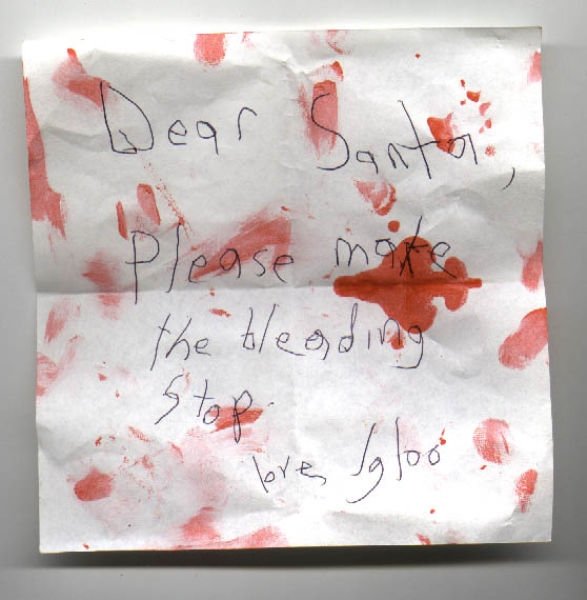 Dear Santa,
Please make
the bleading
stop.
love, Igloo